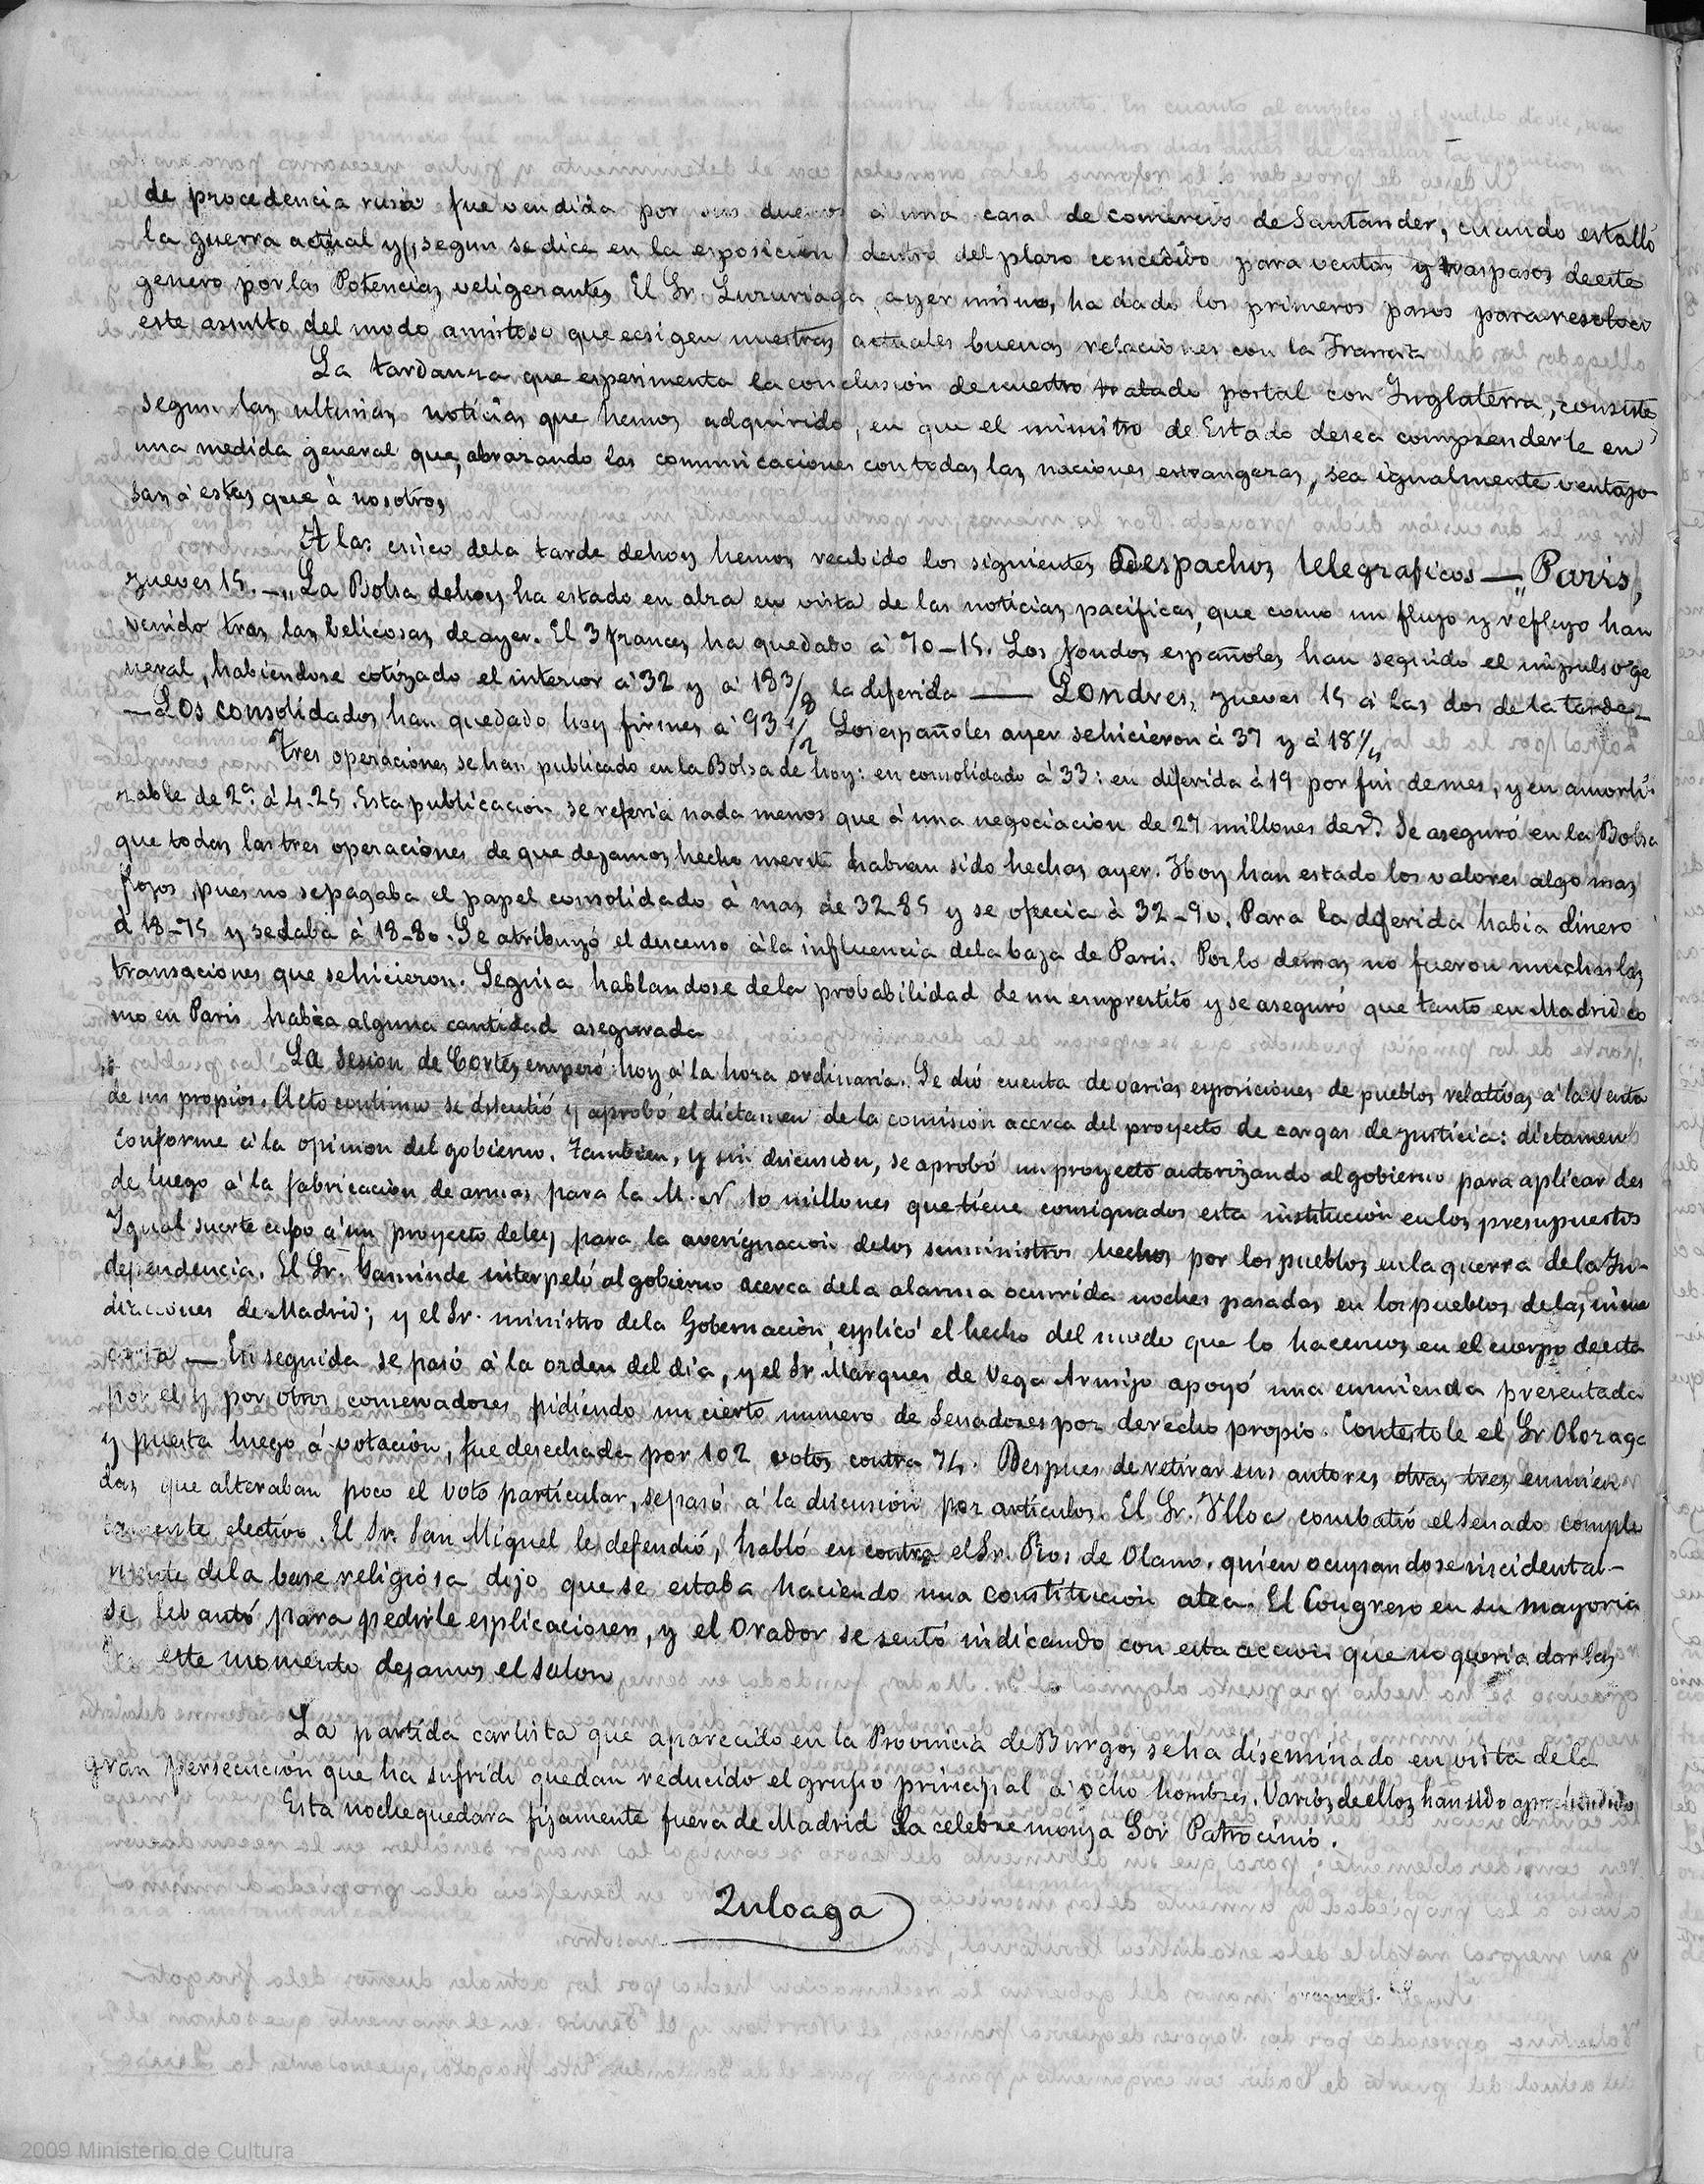 de procedencia rusa fue vendida por sus duenos à una casa de comercio de Santander, cuando estalló
la guerra actual y (segun se dice en la esposicion) dentro del plazo concedido para ventas y traspasos de este
genero por las Potencias veligerantes. El Sr. Luzuriaga ayer mismo, ha dado los primeros pasos para resolver
este assunto del modo amistoso que ecsigen nuestras actuales buenas relaciones con la Francia
La tardanza que esperimenta la conclusion de nuestro tratado postal con Inglaterra, consiste
segun las ultimas noticias que hemos adquirido, en que el ministro de Estado desea comprenderle en
una medida general que, abrazando las comunicaciones con todas las naciones estrangeras, sea igualmente ventajo-
sas à estas que à nosotros
A las cinco de la tarde de hoy hemos recibido los siguientes Despachos telegraficos — Paris,
jueves 15. — "La Bolsa de hoy ha estado en alza en vista de las noticias pacificas, que como un flujo y reflujo han
venido tras las belicosas de ayer. El 3 frances ha quedado à 70-15. Los fondos españoles han seguido el impulso ge
neral, habiendose cotizado el interior à 32 y à 18 3/8 la diferida — Londres, jueves 15 à las dos de la tarde
— Los consolidados han quedado hoy firmes à 93 1/2 Los españoles ayer se hicieron à 37 y à 18 1/4
Tres operaciones se han publicado en la Bolsa de hoy: en consolidado à 33: en diferida à 19 por fin de mes, y en amorti-
zable de 2ª à 4-25. Esta publicacion se referia nada menos que à una negociacion de 27 millones de rs. Se aseguró en la Bolsa
que todas las tres operaciones de que dejamos hecho merito habian sido hechas ayer. Hoy han estado los valores algo mas
flojos, pues no se pagaba el papel consolidado à mas de 32-85 y se ofrecia à 32-90. Para la diferida habia dinero
à 18-75 y se daba à 18-80. Se atribuyó el descenso à la influencia de la baja de Paris. Por lo demas no fueron muchas las
transaciones que se hicieron. Seguia hablandose de la probabilidad de un emprestito y se aseguró que tanto en Madrid co
mo en Paris habia alguna cantidad asegurada
La sesion de Cortes empezó hoy à la hora ordinaria. Se dió cuenta de varias esposiciones de pueblos relativas à la venta
de sus propios. Acto continuo se discutió y aprobó el dictamen de la comision acerca del proyecto de cargas de justicia: dictamen
conforme à la opinion del gobierno. Tambien, y sin discusion, se aprobó un proyecto autorizando al gobierno para aplicar des
de luego à la fabricacion de armas para la M. N 10 millones que tiene consignados esta institucion en los presupuestos
Igual suerte cupo à un proyecto de ley para la averiguacion de los suministros hechos por los pueblos en la guerra de la In-
dependencia. El Sr. Gaminde interpeló al gobierno acerca de la alarma ocurrida noches pasadas en los pueblos de las inme
diaciones de Madrid; y el Sr. ministro de la Gobernacion esplicó el hecho del modo que lo hacemos en el cuerpo de esta
carta — En seguida se pasó à la orden del dia, y el Sr Marques de Vega Armijo apoyó una enmienda presentada
por el y por otros conservadores pidiendo un cierto numero de Senadores por derecho propio. Contestole el Sr Olozaga
y puesta luego à votacion, fue desechada por 102 votos contra 74. Despues de retirar sus autores otras tres enmien
das que alteraban poco el voto particular, se pasó à la discusion por articulos. El Sr. Ulloa combatió el Senado comple
tamente electivo. El Sr. San Miguel le defendió, habló en contra el Sr. Ros de Olano. quien ocupandose incidental-
mente de la base religiosa dijo que se estaba haciendo una constitucion atea. El Congreso en su mayoria
se lebantó para pedirle esplicaciones, y el Orador se sentó indicando con esta accion que no queria darlas
En este momento dejamos el salon
La partida carlista que aparecido en la Provincia de Burgos se ha diseminado en vista de la
gran persecucion que ha sufrido quedan reducido el grupo principal à ocho hombres. Varios de ellos han sido aprehendidos
Esta noche quedara fijamente fuera de Madrid La celebre monja Sor Patrocinio.
Zuloaga
2009 Ministerio de Cultura